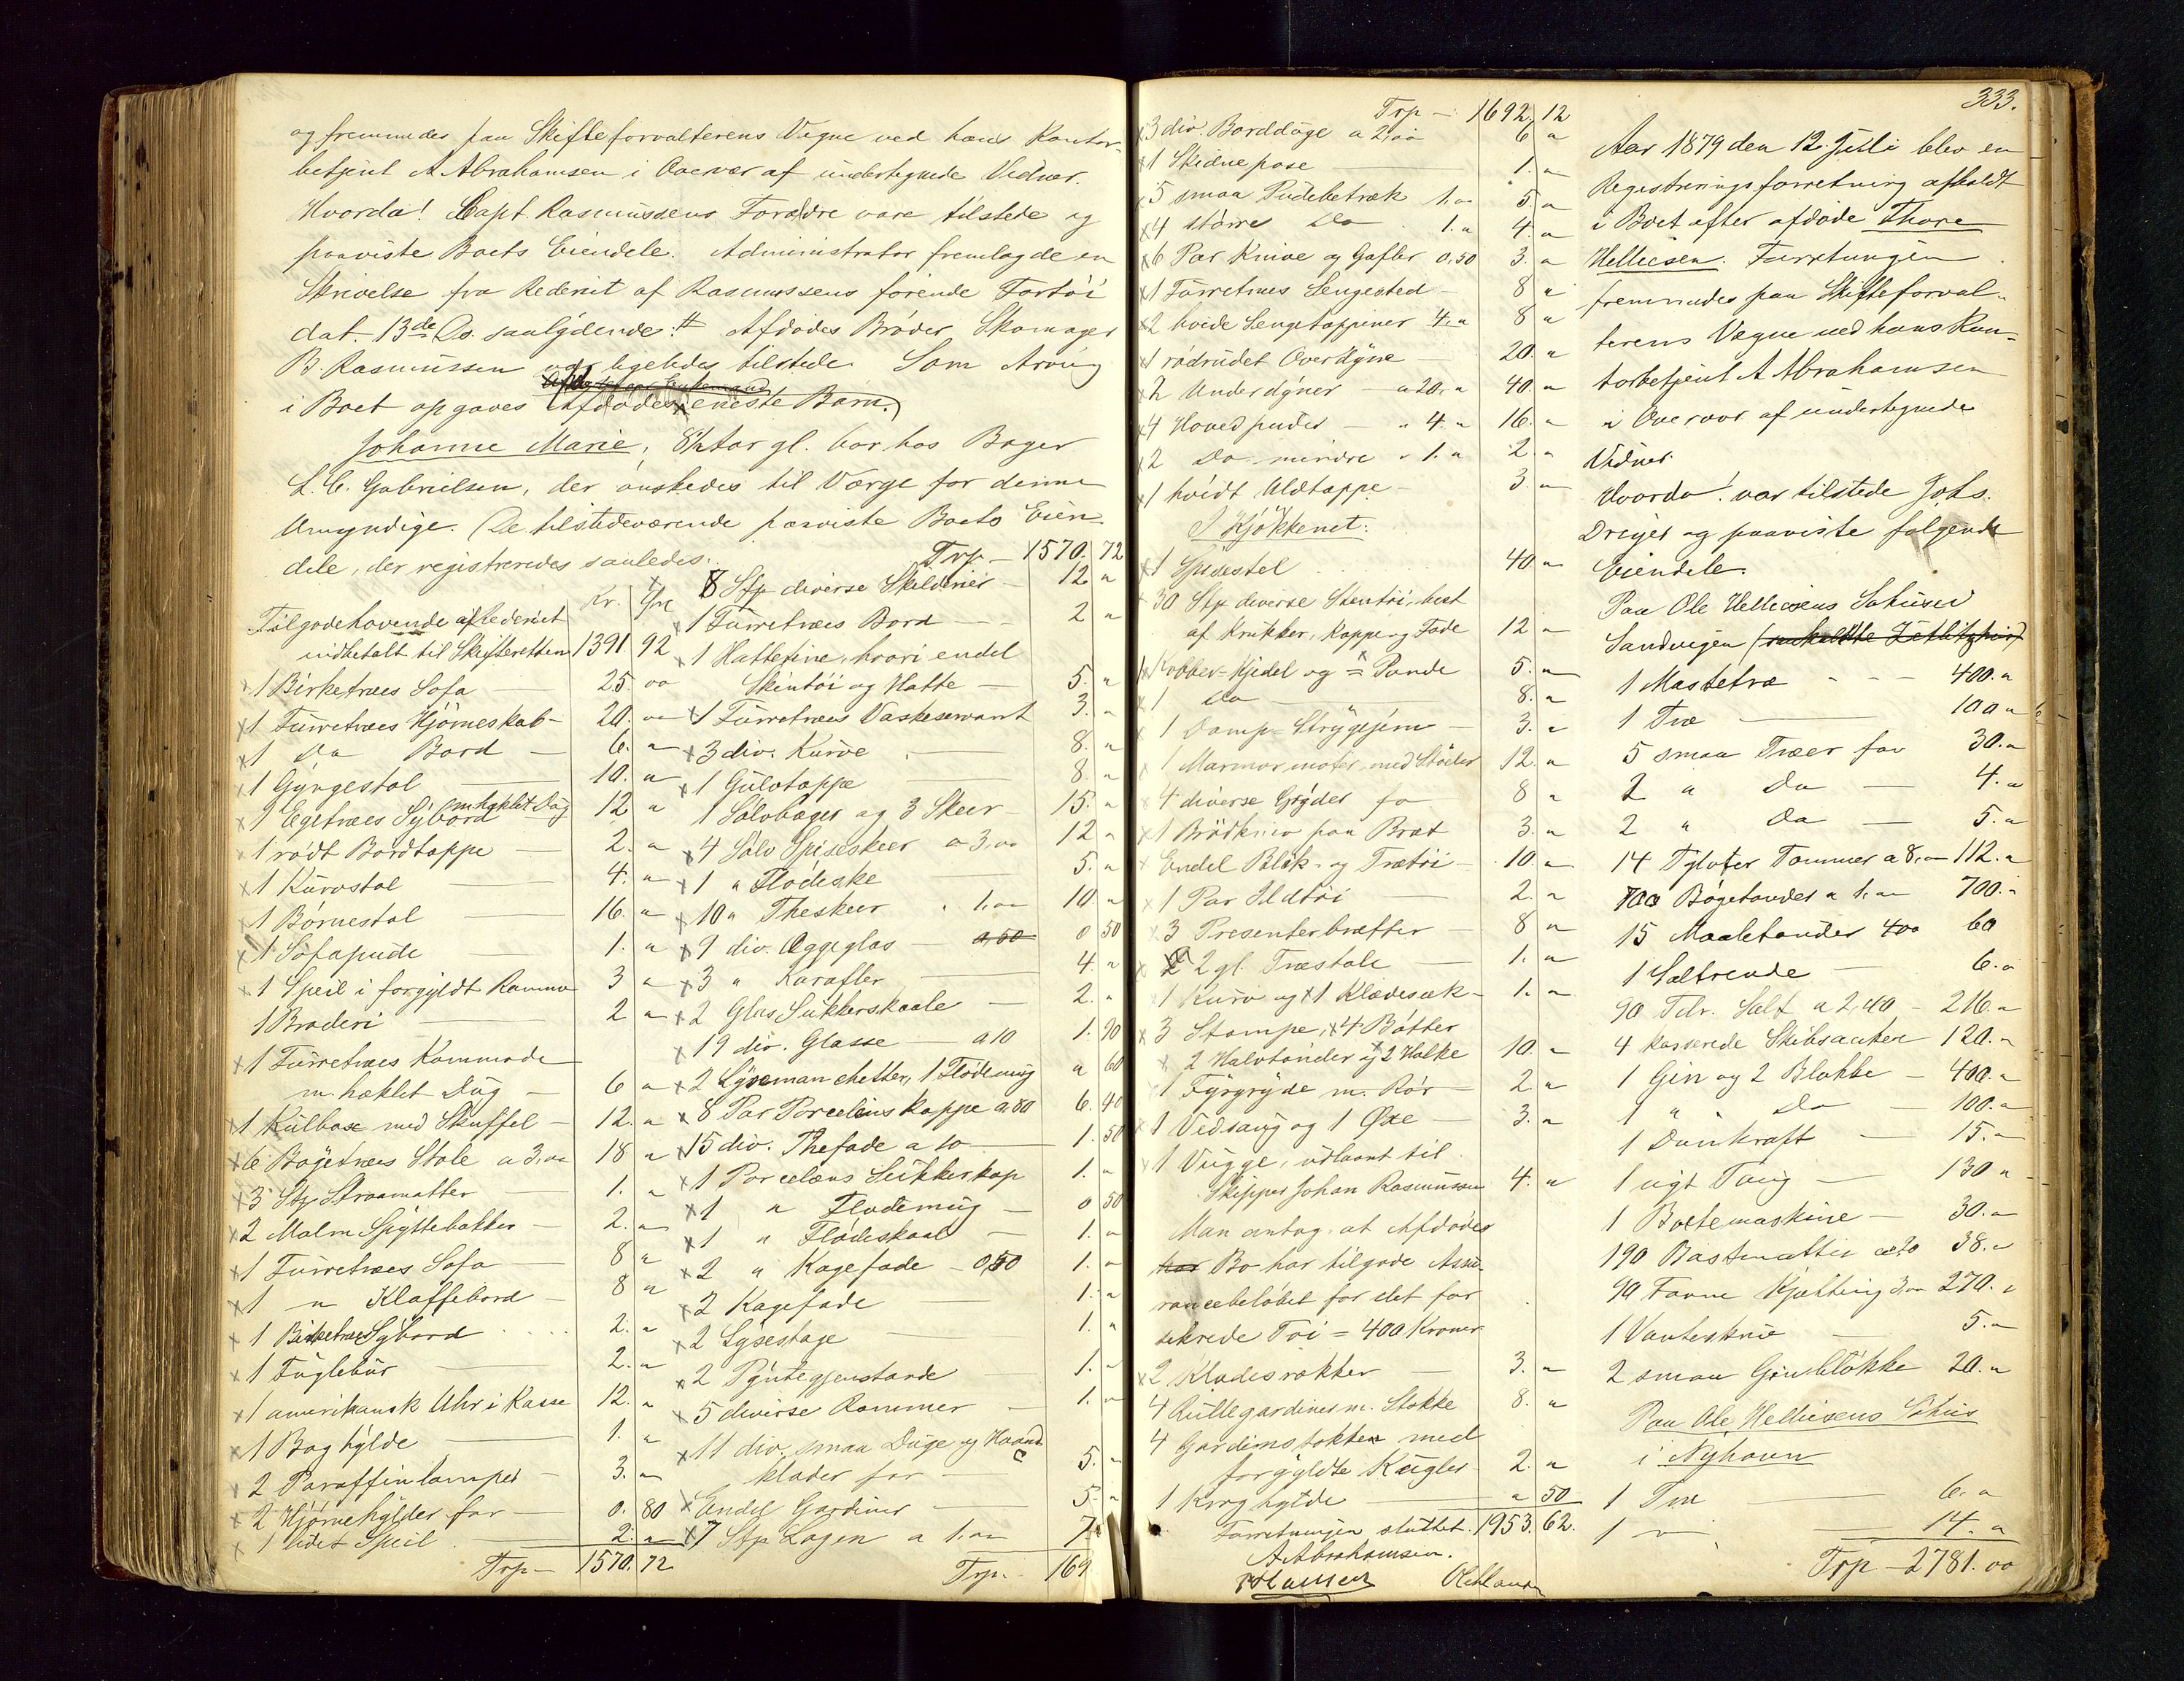 og fremmedes paa Skifteforvalterens Vegne ved hans Kontor-
betjent A Abrahamsen i Overvær af undertegnede Vidner.
Hvorda! Capt. Rasmussens Forældre vare tilstede og
paaviste Boets Eiendele. Administrator fremlagde en
Skrivelse fra Rederiet af Rasmussens førende Fartøi
dat. 13de Ds. saalydende: # Afdødes Broder, Skomager
B. Rasmussen var ligeledes tilstede Som Arving
i Boet opgaves Afdødes eneste Barn.
Johanne Marie, 8½ Aar gl. bor hos Bager
L. C. Gabrielsen, der ønskedes til Værge for denne
Umyndige. De tilstedeværende paaviste Boets Eien-
dele, der registreredes saaledes:
Kr. Øre
Tilgodehavende af Rederiet
indbetalt til Skifteretten 1391. 92
x 1 Birketræes Sofa — 25. 00
x 1 Furretræes Hjørneskab — 20. 00
x 1 Do Bord — 6. "
x 1 Gyngestol — 10. "
x 1 Egetræes Sybord m hæklet Dug 12 "
x 1 rødt Bordtæppe — 2. "
x 1 Kurvstol — 4. "
x 1 Børnestol — 16. "
x 1 Sofapude — 1. "
x 1 Speil i forgyldt Ramme 3 "
1 Broderi — 2 "
x 1 Furretræes Kommode
m. hæklet Dug — 6 "
x 1 Kulbøxe med Skuffel — 12. "
x 6 Bøgetræes Stole a 3,00 18 "
x 3 Stp Straamatter 1. "
x 2 Malm Spyttebakker — 2. "
x 1 Furretræes Sofa — 8 "
x 1 " Klaffebord — 8 "
x 1 Birketræes Sybord 2. "
x 1 Fuglebur — 2. "
x 1 amerikansk Uhr i Kasse 12. "
x 1 Boghylde — 1. "
x 2 Paraffinlamper — 3. "
x 2 Hjørnehylder for — 0. 80
x 1 lidet Speil — 2. "
Trp — 1570. 72
Trp — 1570. 72
x 8 Stp diverse Skilderier — 12 "
x 1 Furretræes Bord — 2 "
x 1 Hattetine, hvori endel
Skintøi og Hatte — 5. "
x 1 Furretræes Vaskeservant 3. "
x 3 div. Kurve — 8. "
x 1 Gulvtæppe — 8. "
1 Sølvbæger og 3 Skeer 15. "
x 4 Sølv Spiseskeer a 3,00 12 "
x 1 " Flødeske 5. "
x 10 " Theskeer " 1,00 10. "
x 9 div. Æggeglas 0,50 0 50
x 3 " Karafler — 4. "
x 2 Glas Sukkerskaale — 2. "
x 19 div. Glasse — a 10 1. 90
x 2 Lysemanchetter, 1 Flødemug " 60
x 8 Par Porcelæns koppe a 80 6. 40
x 15 div. Thefade a 10 — 1. 50
x 1 Porcelæns Sukkerkop 1. "
x 1 " Flødemug — 0 50
x 1 " Flødeskaal — 1. "
x 2 " Kagefade — 0,50 1. "
x 2 Kagefade — 1. "
x 2 Lysestage — 1. "
x 2 Pyntegjenstande — 1. "
x 5 diverse Rammer — 1. "
x 11 div. smaa Duge og Haand-
klæder for — 5. "
x Endel Gardiner — 5. "
x 7 Stp Lagen a 1.00 7
Trp. 169
Trp — 1692. 12
x 3 div. Borddüge a 2,00 6 "
x 1 Skidnepose — 1. "
x 5 smaa Pudebetræk 1.00 5. "
x 4 større Do 1. " 4. "
x 6 Par Knive og Gafler 0,50 3. "
x 1 Furretræes Sengested — 8 "
x 2 hvide Sengetæpper 4. " 8 "
x 1 rødrudet Overdyne — 20. "
x 2 Underdyner — a 20. " 40. "
x 4 Hovedpuder — " 4. " 16. "
x 2 Do mindre " 1. " 2. "
x 1 hvidt Uldtæppe — 3. "
I Kjøkkenet:
x 1 Spisestel 40 "
30 Stp diverse Stentøi, best
af Krukker, Kopper og Fade 12 "
1 Kobber-Kjedel og = Pande 5. "
x 1 Do — 8. "
x 1 Damp-Strygejern — 3. "
x 1 Marmor morter med Støder 12. "
x 4 diverse Gryder for 8 "
x 1 Brødkniv paa Bræt 3. "
x Endel Blik- og Trætøi — 10. "
x 1 Par Ildtøi — 2. "
x 3 Presenterbræffer — 8 "
x 2 gl. Træstole — 1. "
x 1 Kurv og x 1 Klædesæk — 1. "
x 3 Stampe, x 4 Bøtter
x 2 Halvtønder og 2 Holke 10. "
x 1 Fyrgryde m. Rør — 2 "
x 1 Vedsaug og 1 Øxe — 3. "
x 1 Vugge, udlaant til
Skipper Johan Rasmussen 4. "
Man antog, at Afdødes
Bo har tilgode Assu-
rancebeløbet for det for
sikrede Tøi = 400 Kroner
x 2 Klædesrækker — 3. "
4 Rullegardiner m. Stokke 8. "
4 Gardinstokke med
forgyldte Kugler — 2. "
1 Kroghylde — " 50
Forretningen sluttet. 1953. 62.
A Abrahamsen.
333.
Aar 1879 den 12. Juli blev en
Registreringsforretning afholdt
i Boet efter afdøde Thore
Helliesen. Forretningen
fremmedes paa Skifteforval-
terens Vegne ved hans Kon-
torbetjent A Abrahamsen
i Overvær af undertegnede
Vidner.
Hvorda! var tilstede Johs.
Dreyer og paaviste følgende
Eiendele.
Paa Ole Helliesens Søhuse
Sandvigen
1 Mastetræ - - - 400. "
1 Træ — 100 "
5 smaa Træer for 30. "
2 " Do — 4. "
2 " Do — 5. "
14 Tylvter Tømmer a 8,00 112. "
700 Bøgetønder a 1,00 700. "
15 Maaletønder 400 60
1 Saltrende — 6. "
90 Tdr. Salt a 2,40 — 216. "
4 kasserede Skibsankere 120. "
1 Gin og 2 Blokke — 400. "
1 " Do — 100. "
1 Dunkraft — 15. "
1 nyt Toug — 130 "
1 Bøtemaskine — 30. "
190 Bastmatter a 20 38. "
90 Favne Kjætting 3,00 270. "
1 Vanteskrue — 5. "
2 smaa Ginblokke 20. "
Paa Ole Helliesens Søhus
i Nyhavn
1 Træ — 6. "
1 " — 14. "
Trp — 2781. 00